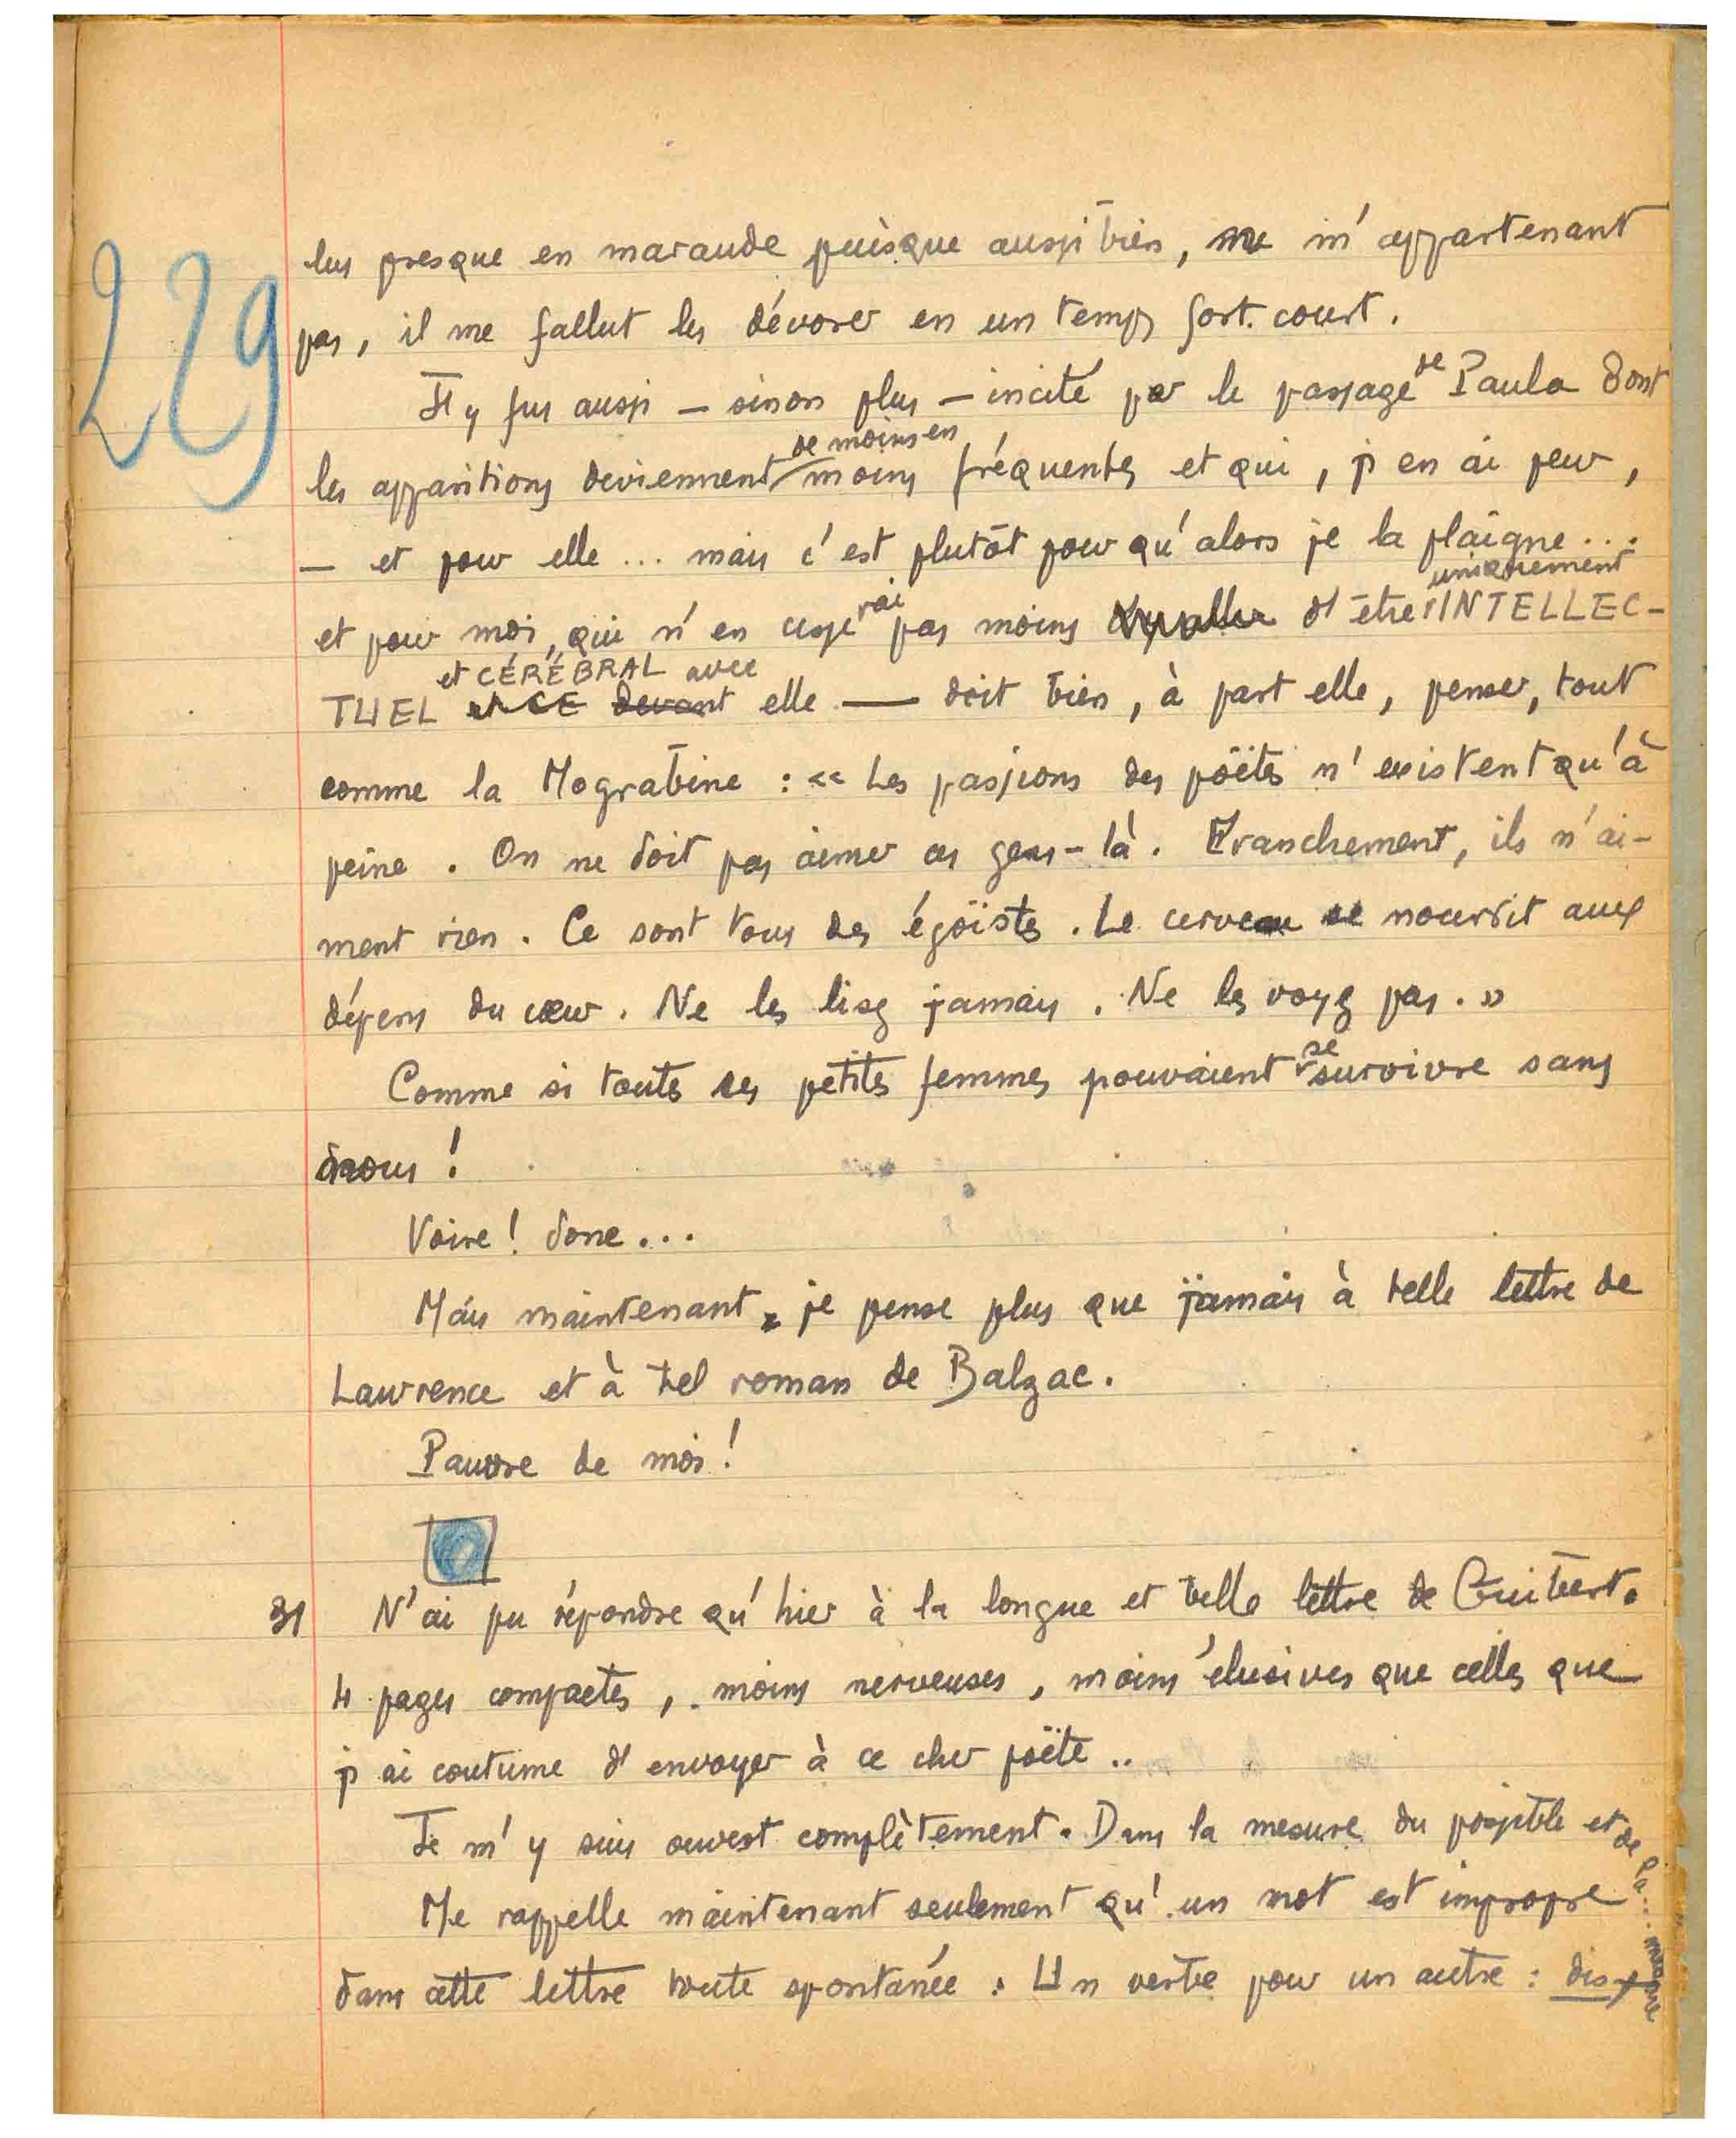 229
lus presque en maraude puisque aussi bien, ne m'appartenant
pas, il me fallut les dévorer en un temps fort court.
J'y fus aussi — sinon plus — incité par le passage de Paula dont
les apparitions deviennent de moins en moins fréquentes et qui, j'en ai peur,
— et pour elle ... mais c'est plutôt pour qu'alors je la plaigne ...
et pour moi, qui n'en cesserai pas moins d'être uniquement INTELLEC-
TUEL et CÉRÉBRAL avec elle — doit bien, à part elle, penser, tout
comme la Mograbine : « Les passions des poëtes n'existent qu'à
peine. On ne doit pas aimer ces gens-là. Franchement, ils n'ai-
ment rien. Ce sont tous des égoïstes. Le cerveau se nourrit aux
dépens du cœur. Ne les lisez jamais. Ne les voyez pas. »
Comme si toutes ces petites femmes pouvaient se survivre sans
nous !
Voire ! donc ...
Mais maintenant, je pense plus que jamais à telle lettre de
Lawrence et à tel roman de Balzac.
Pauvre de moi !
31 N'ai pu répondre qu'hier à la longue et belle lettre de Guibert.
4 pages compactes, moins nerveuses, moins élusives que celles que
j'ai coutume d'envoyer à ce cher poëte ..
Je m'y suis ouvert complètement. Dans la mesure du possible et de la ... mesure
Me rappelle maintenant seulement qu'un mot est impropre
dans cette lettre toute spontanée. Un verbe pour un autre : dis-